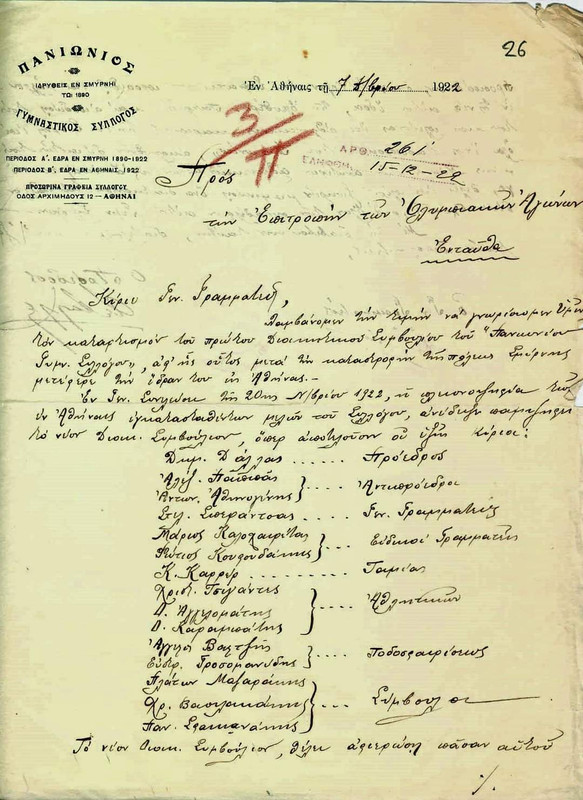 26
ΠΑΝΙΩΝΙΟΣ
ΙΔΡΥΘΕΙΣ ΕΝ ΣΜΥΡΝΗ
ΤΩ 1890
ΓΥΜΝΑΣΤΙΚΟΣ ΣΥΛΛΟΓΟΣ
ΠΕΡΙΟΔΟΣ Α΄. ΕΔΡΑ ΕΝ ΣΜΥΡΝΗ 1890-1922
ΠΕΡΙΟΔΟΣ Β΄. ΕΔΡΑ ΕΝ ΑΘΗΝΑΙΣ 1922
ΠΡΟΣΩΡΙΝΑ ΓΡΑΦΕΙΑ ΣΥΛΛΟΓΟΥ
ΟΔΟΣ ΑΡΧΙΜΗΔΟΥΣ 12 — ΑΘΗΝΑΙ
Ἐν Ἀθήναις τῇ 7 Δ/βρίου 1922
3/Π
ΑΡΙΘ 261
ΕΛΗΦΘΗ 15-12-22
Πρὸς
τὴν Ἐπιτροπὴν τῶν Ὀλυμπιακῶν Ἀγώνων
Ἐνταῦθα
Κύριε Γεν. Γραμματεῦ,
Λαμβάνομεν τὴν τιμὴν νὰ γνωρίσωμεν Ὑμῖν
τὸν καταρτισμὸν τοῦ πρώτου Διοικητικοῦ Συμβουλίου τοῦ "Πανιωνίου
Γυμν. Συλλόγου", ἀφ' ἧς οὗτος μετὰ τὴν καταστροφὴν τῆς πόλεως Σμύρνης
μετέφερε τὴν ἕδραν του ἐν Ἀθήναις.—
Ἐν Γεν. Συνελεύσει τῆς 20ης Ν/βρίου 1922, ἡ πλειονοψηφία τῶν
ἐν Ἀθήναις ἐγκατασταθέντων μελῶν τοῦ Συλλόγου, ἀνέδειξεν παμψηφεὶ
τὸ νέον Διοικ. Συμβούλιον, ὅπερ ἀποτελοῦσιν οἱ ἑξῆς κύριοι:
Δημ. Δάλλας ..... Πρόεδρος
Ἀλέξ. Παϊπᾶς
Ἀντων. Ἀθηνογένης } .... Ἀντιπρόεδροι
Στιλ. Σπεράντσας .... Γεν. Γραμματεύς
Μάριος Καλοχαιρέτας
Φώτιος Κουλουδάκης } ... Εἰδικοὶ Γραμματεῖς
Κ. Καρρέρ ..... Ταμίας
Χριστ. Τσιγάντες
Δ. Ἀγγελομάτης
Δ. Καραμπάτης } .... Ἀθλητικῶν
Ἄγγελος Βαλτζῆς
Εὐάγ. Προσομανίδης } .... Ποδοσφαιρίσεως
Πλάτων Μαζαράκης
Χρ. Βασιλακάκης
Παν. Σφακιανάκης } .... Σύμβουλοι
Τὸ νέον Διοικ. Συμβούλιον, θέλει ἀφιερώσῃ πᾶσαν αὐτοῦ
./.